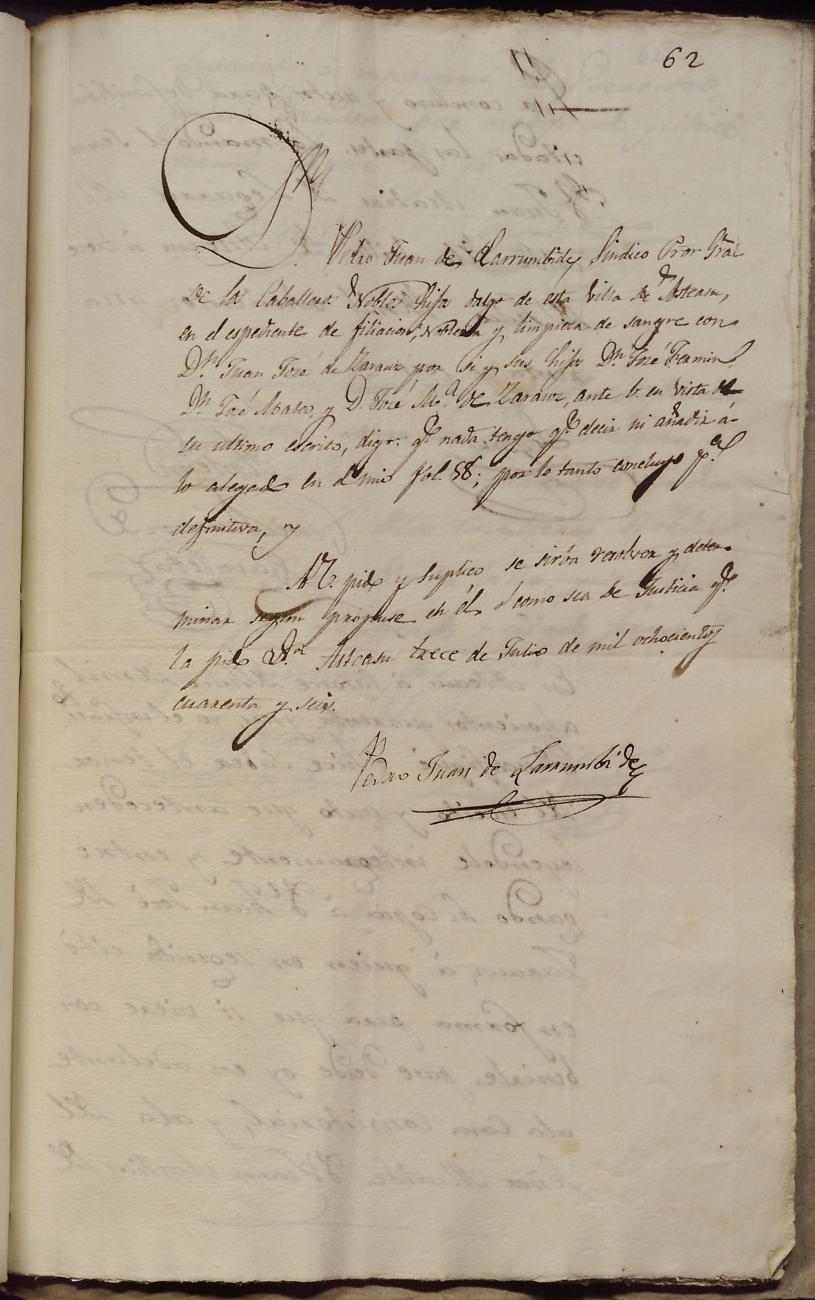 62
Dn. Pedro Juan de Larrumbide, Sindico Pror. Gral
de la Caballeros Nobles hijos dalgo de esta Villa de Asteasu,
en el espediente de filiacion, nobleza y limpieza de sangre con
Dn. Juan José de Zarauz por si y sus hijos Dn. José Fermin,
Dn. José Mateo, y D. José Ma. de Zarauz, ante V. en vista de
su ultimo escrito, digo: qe. nada tengo qe. decir ni añadir á
lo alegado en el mio fol. 58; por lo tanto concluyo pa.
definitiva, y
A V. pido y suplico se sirba resolver y deter-
minar segun propuse en él ó como sea de Justicia qe.
la pido Va. Asteasu trece de Julio de mil ochocientos
cuarenta y seis.
Pedro Juan de Larrumbide